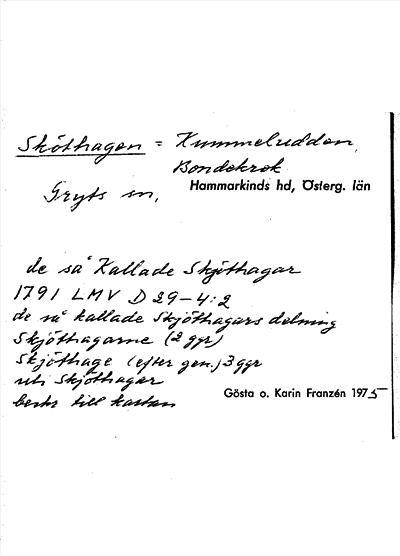 Sköthagen = Kummeludden,
Bondekrok
Gryts sn,
Hammarkinds hd, Österg. län
de så Kallade Skjöthagar
1791 LMV D 29-4:2
de så kallade Skjöthagars delning
Skjöthagarne (2 ggr)
Skjöthage (efter gen.) 3 ggr
uti Skjöthagar
beskr till kartan
Gösta o. Karin Franzén 1975